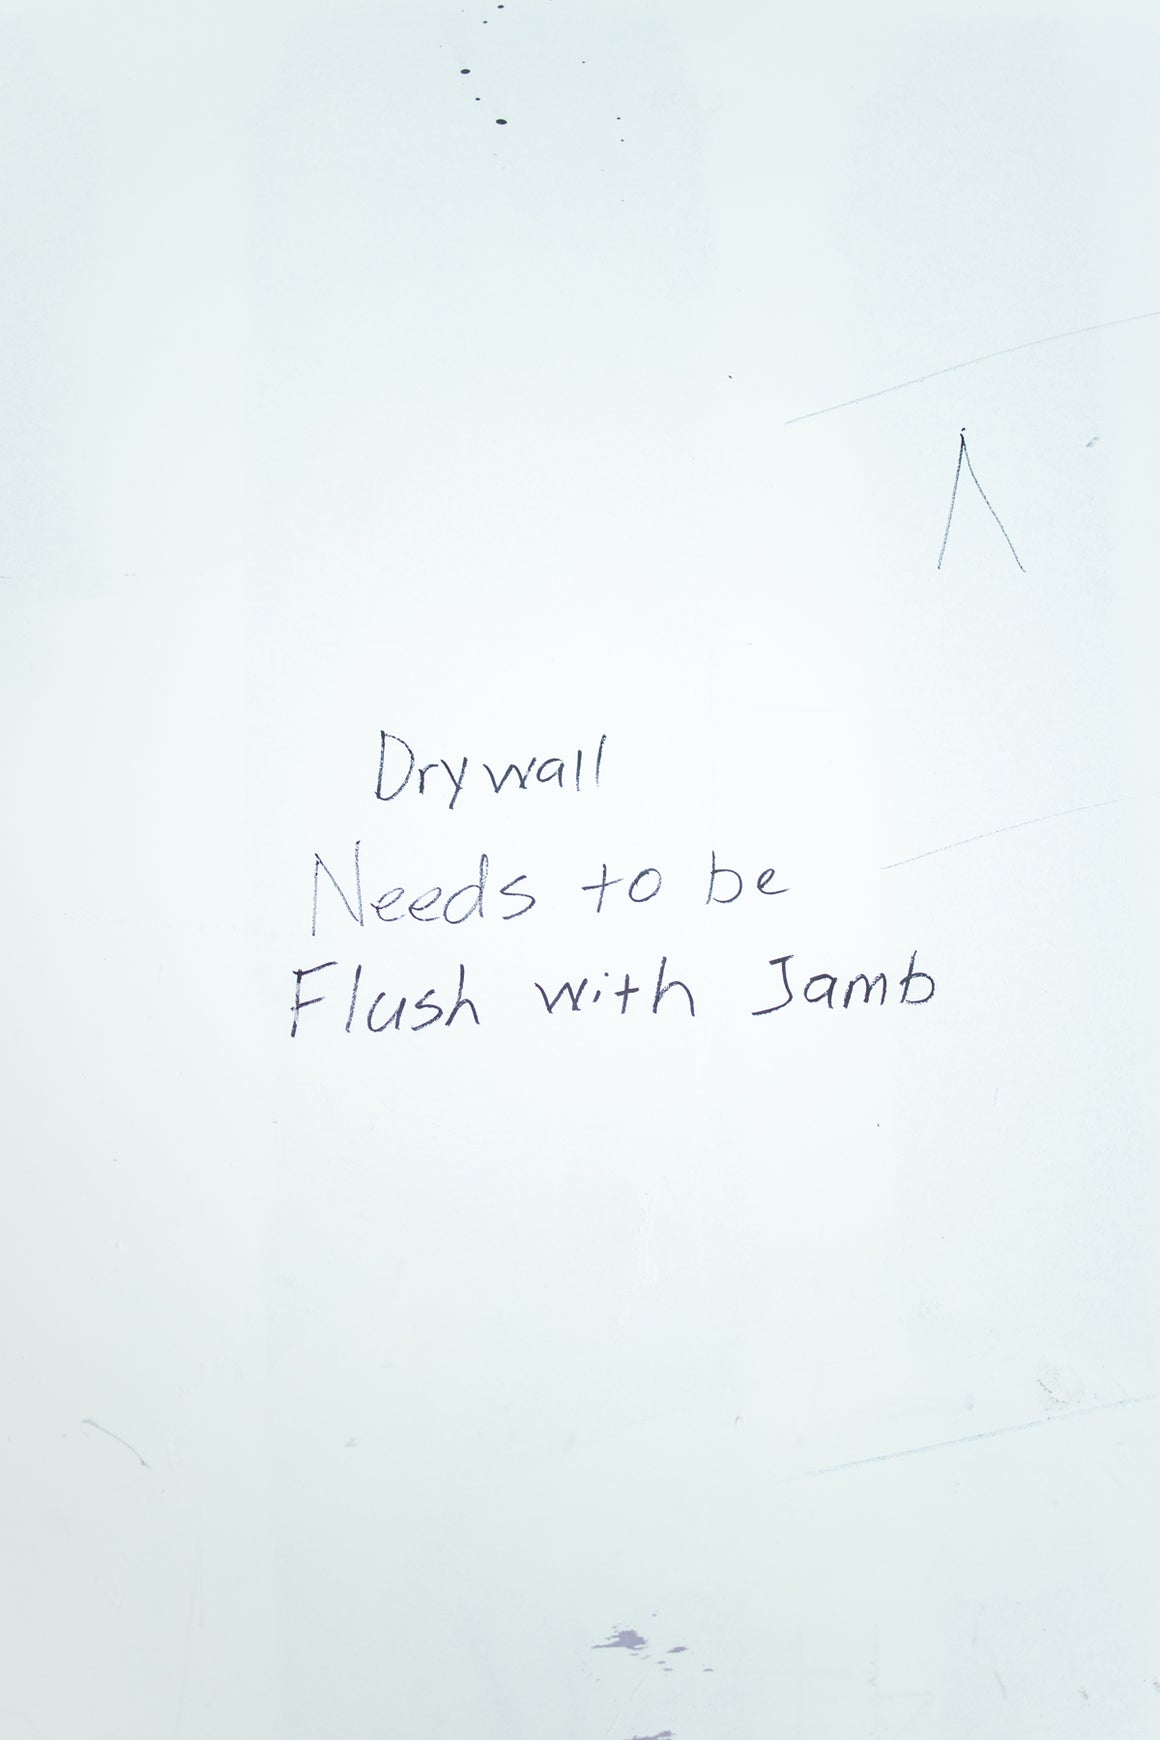 Drywall
Needs to be
Flush with Jamb